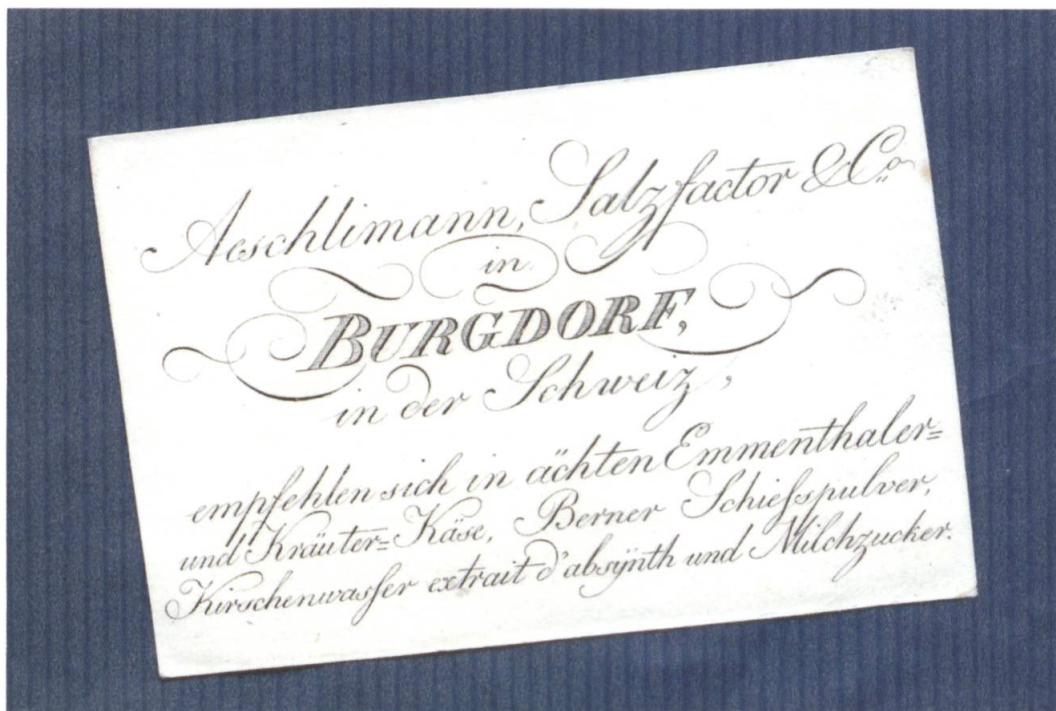 Aeschlimann, Salzfactor & Co
in
BURGDORF,
in der Schweiz,
empfehlen sich in ächten Emmenthaler=
und Kräuter=Käse, Berner Schießpulver,
Kirschenwasser extrait d'absÿnth und Milchzucker.